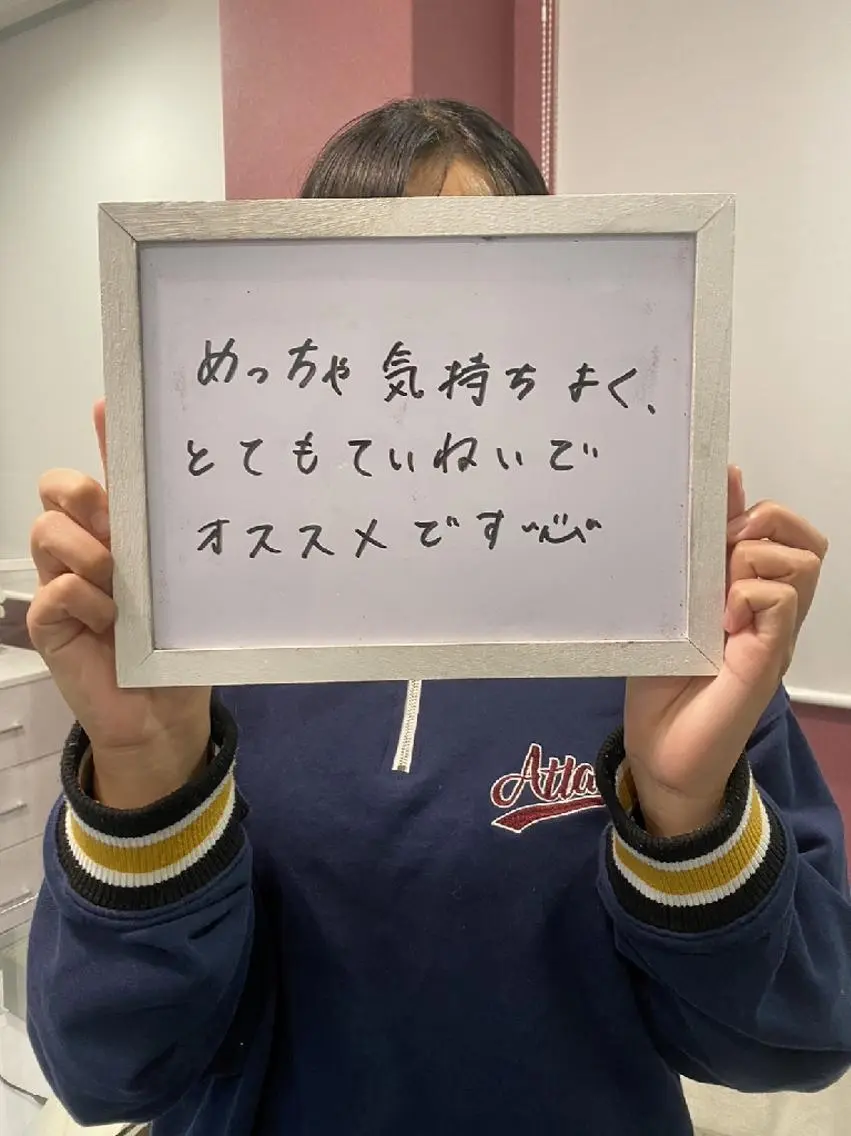 めっちゃ気持ちよく、
とてもていねいで
オススメです
Atla